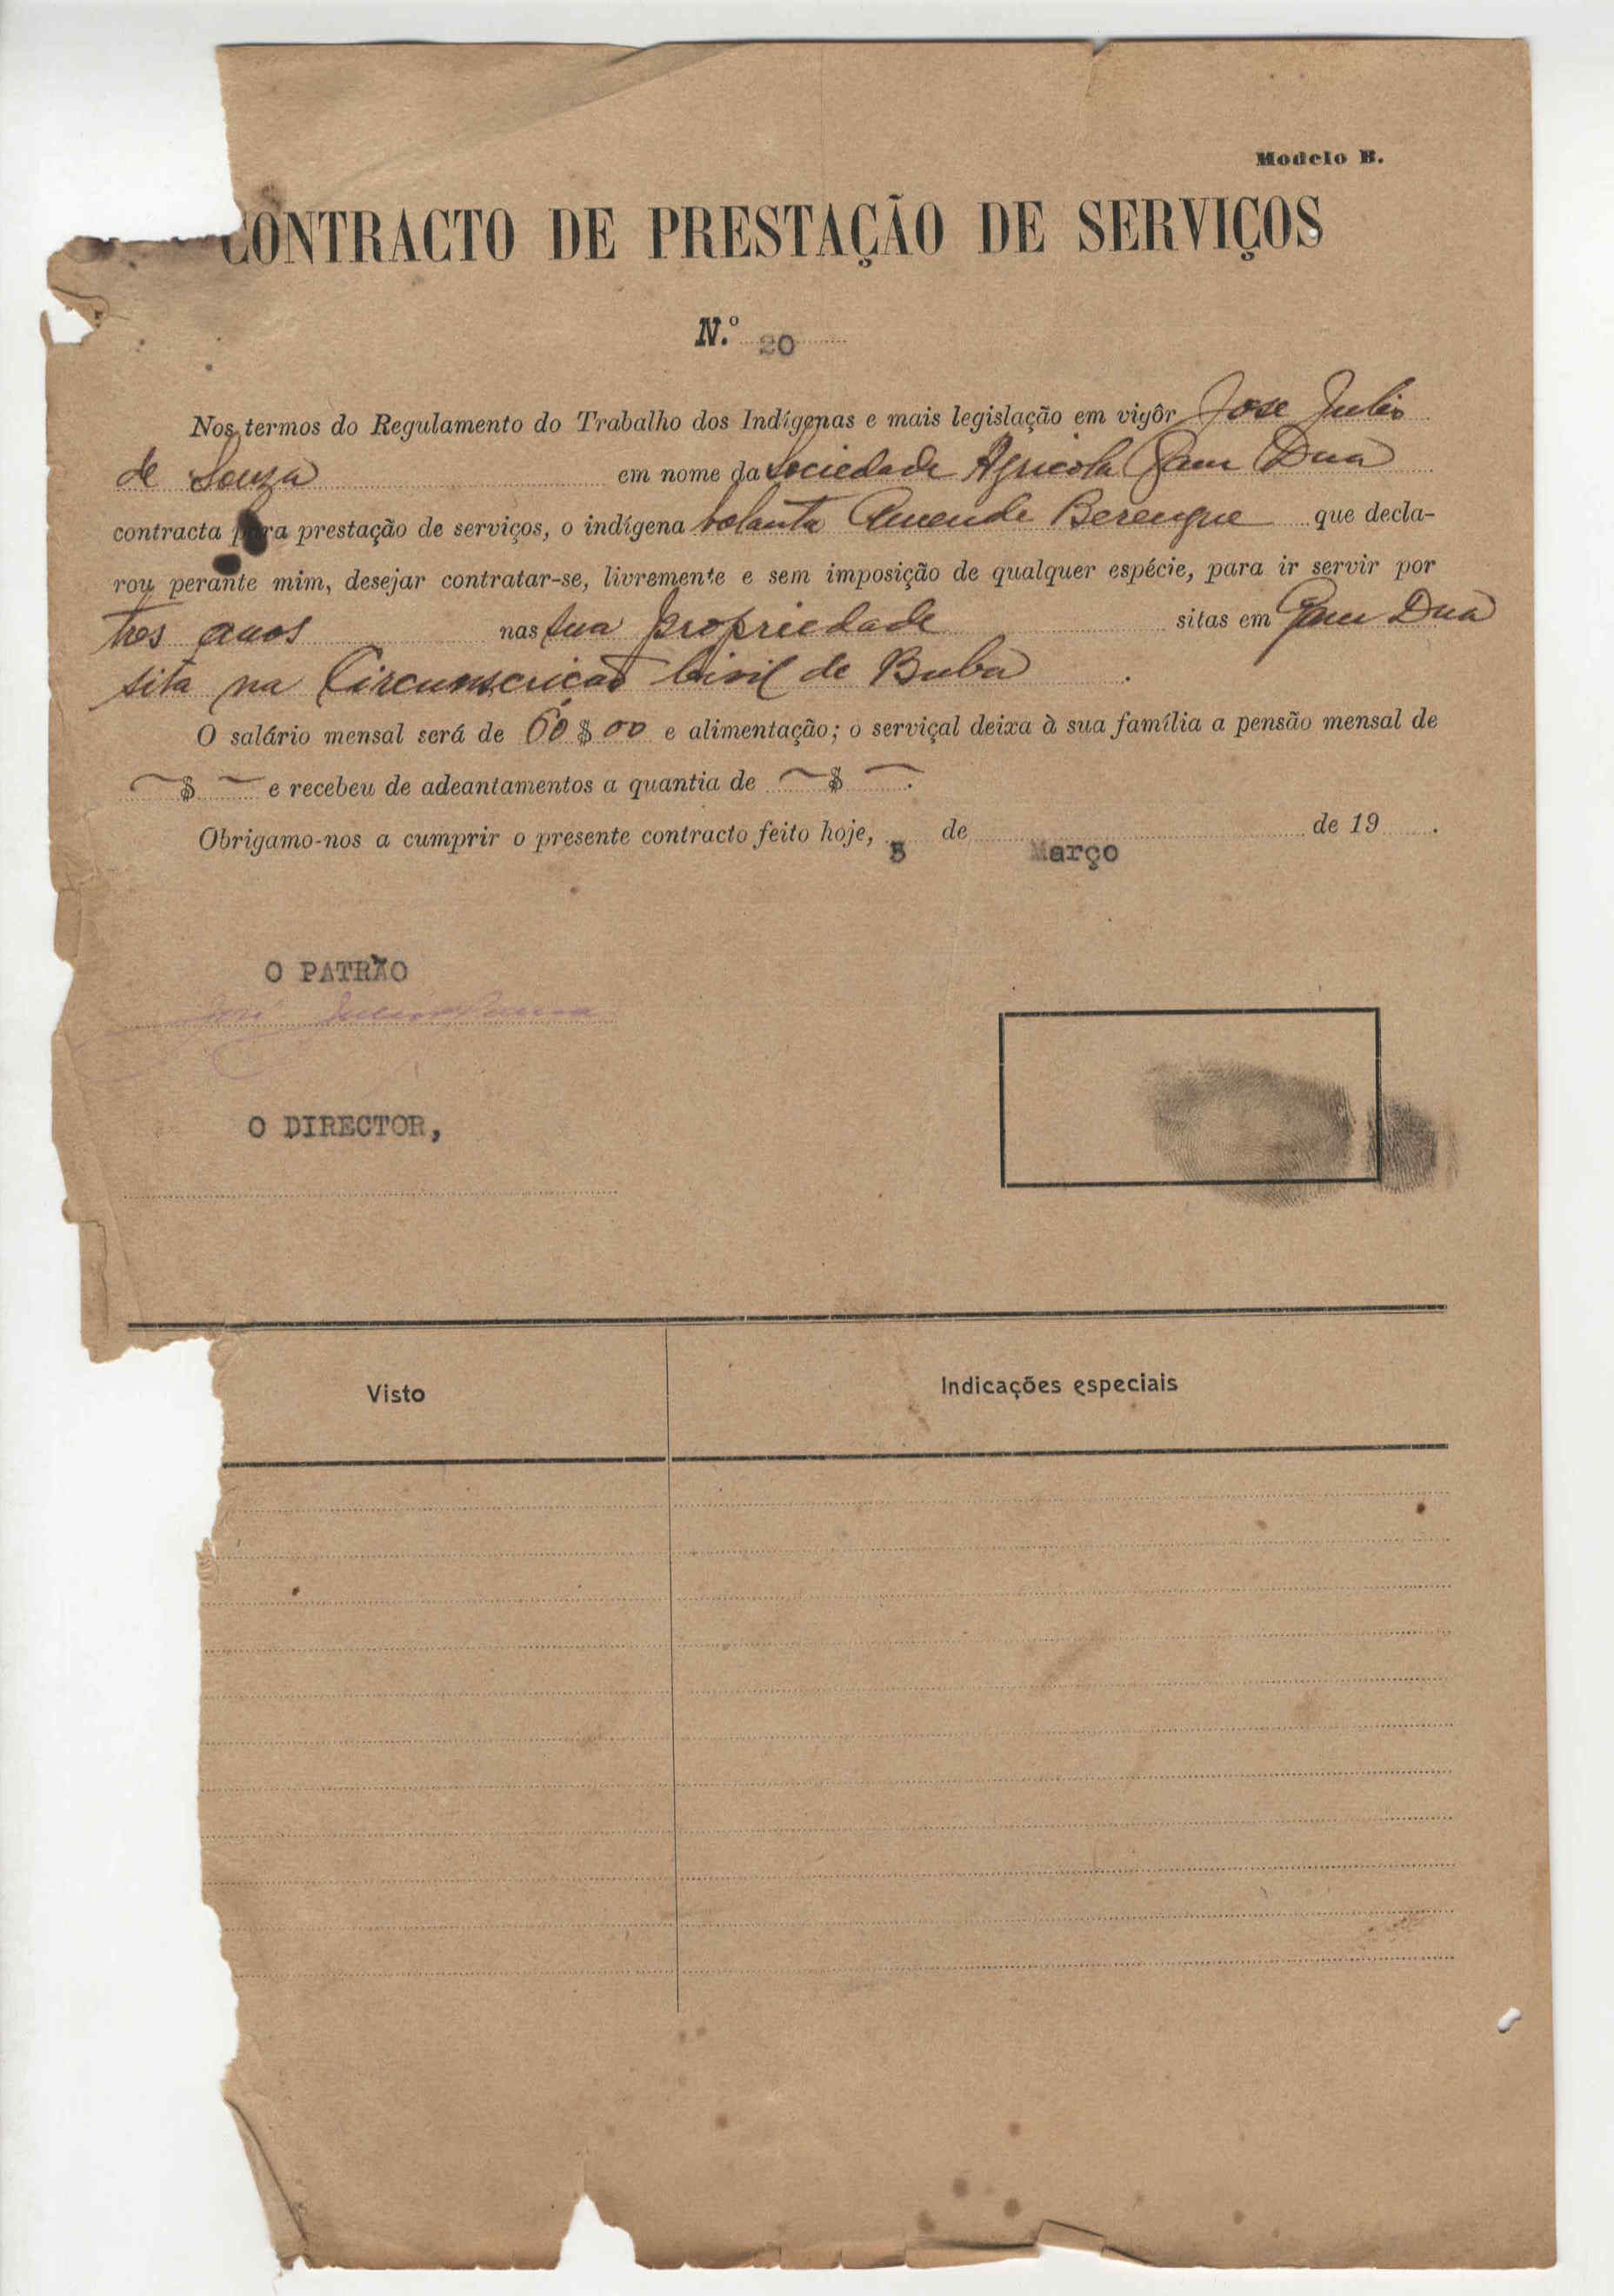 Modelo B.
CONTRACTO DE PRESTAÇÃO DE SERVIÇOS
N.º 20
Nos termos do Regulamento do Trabalho dos Indígenas e mais legislação em vigôr Jose Julio
de Souza em nome da Sociedade Agricola Gam Dua
contracta para prestação de serviços, o indígena volanta Amende Berengue que decla-
rou perante mim, desejar contratar-se, livremente e sem imposição de qualquer espécie, para ir servir por
tres anos nas sua propriedade sitas em Gam Dua
sita na Circumscricão Civil de Buba .
O salário mensal será de 60 $ 00 e alimentação; o serviçal deixa à sua família a pensão mensal de
— $ — e recebeu de adeantamentos a quantia de — $ — .
Obrigamo-nos a cumprir o presente contracto feito hoje, 5 de Março de 19 .
O PATRÃO
José Julio Souza
O DIRECTOR,
Visto Indicações especiais